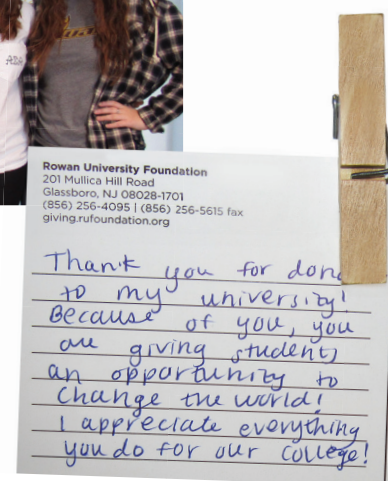 Rowan University Foundation
201 Mullica Hill Road
Glassboro, NJ 08028-1701
(856) 256-4095 | (856) 256-5615 fax
giving.rufoundation.org
Thank you for dona
to my university!
Because of you, you
are giving students
an opportunity to
change the world!
I appreciate everything
you do for our college!